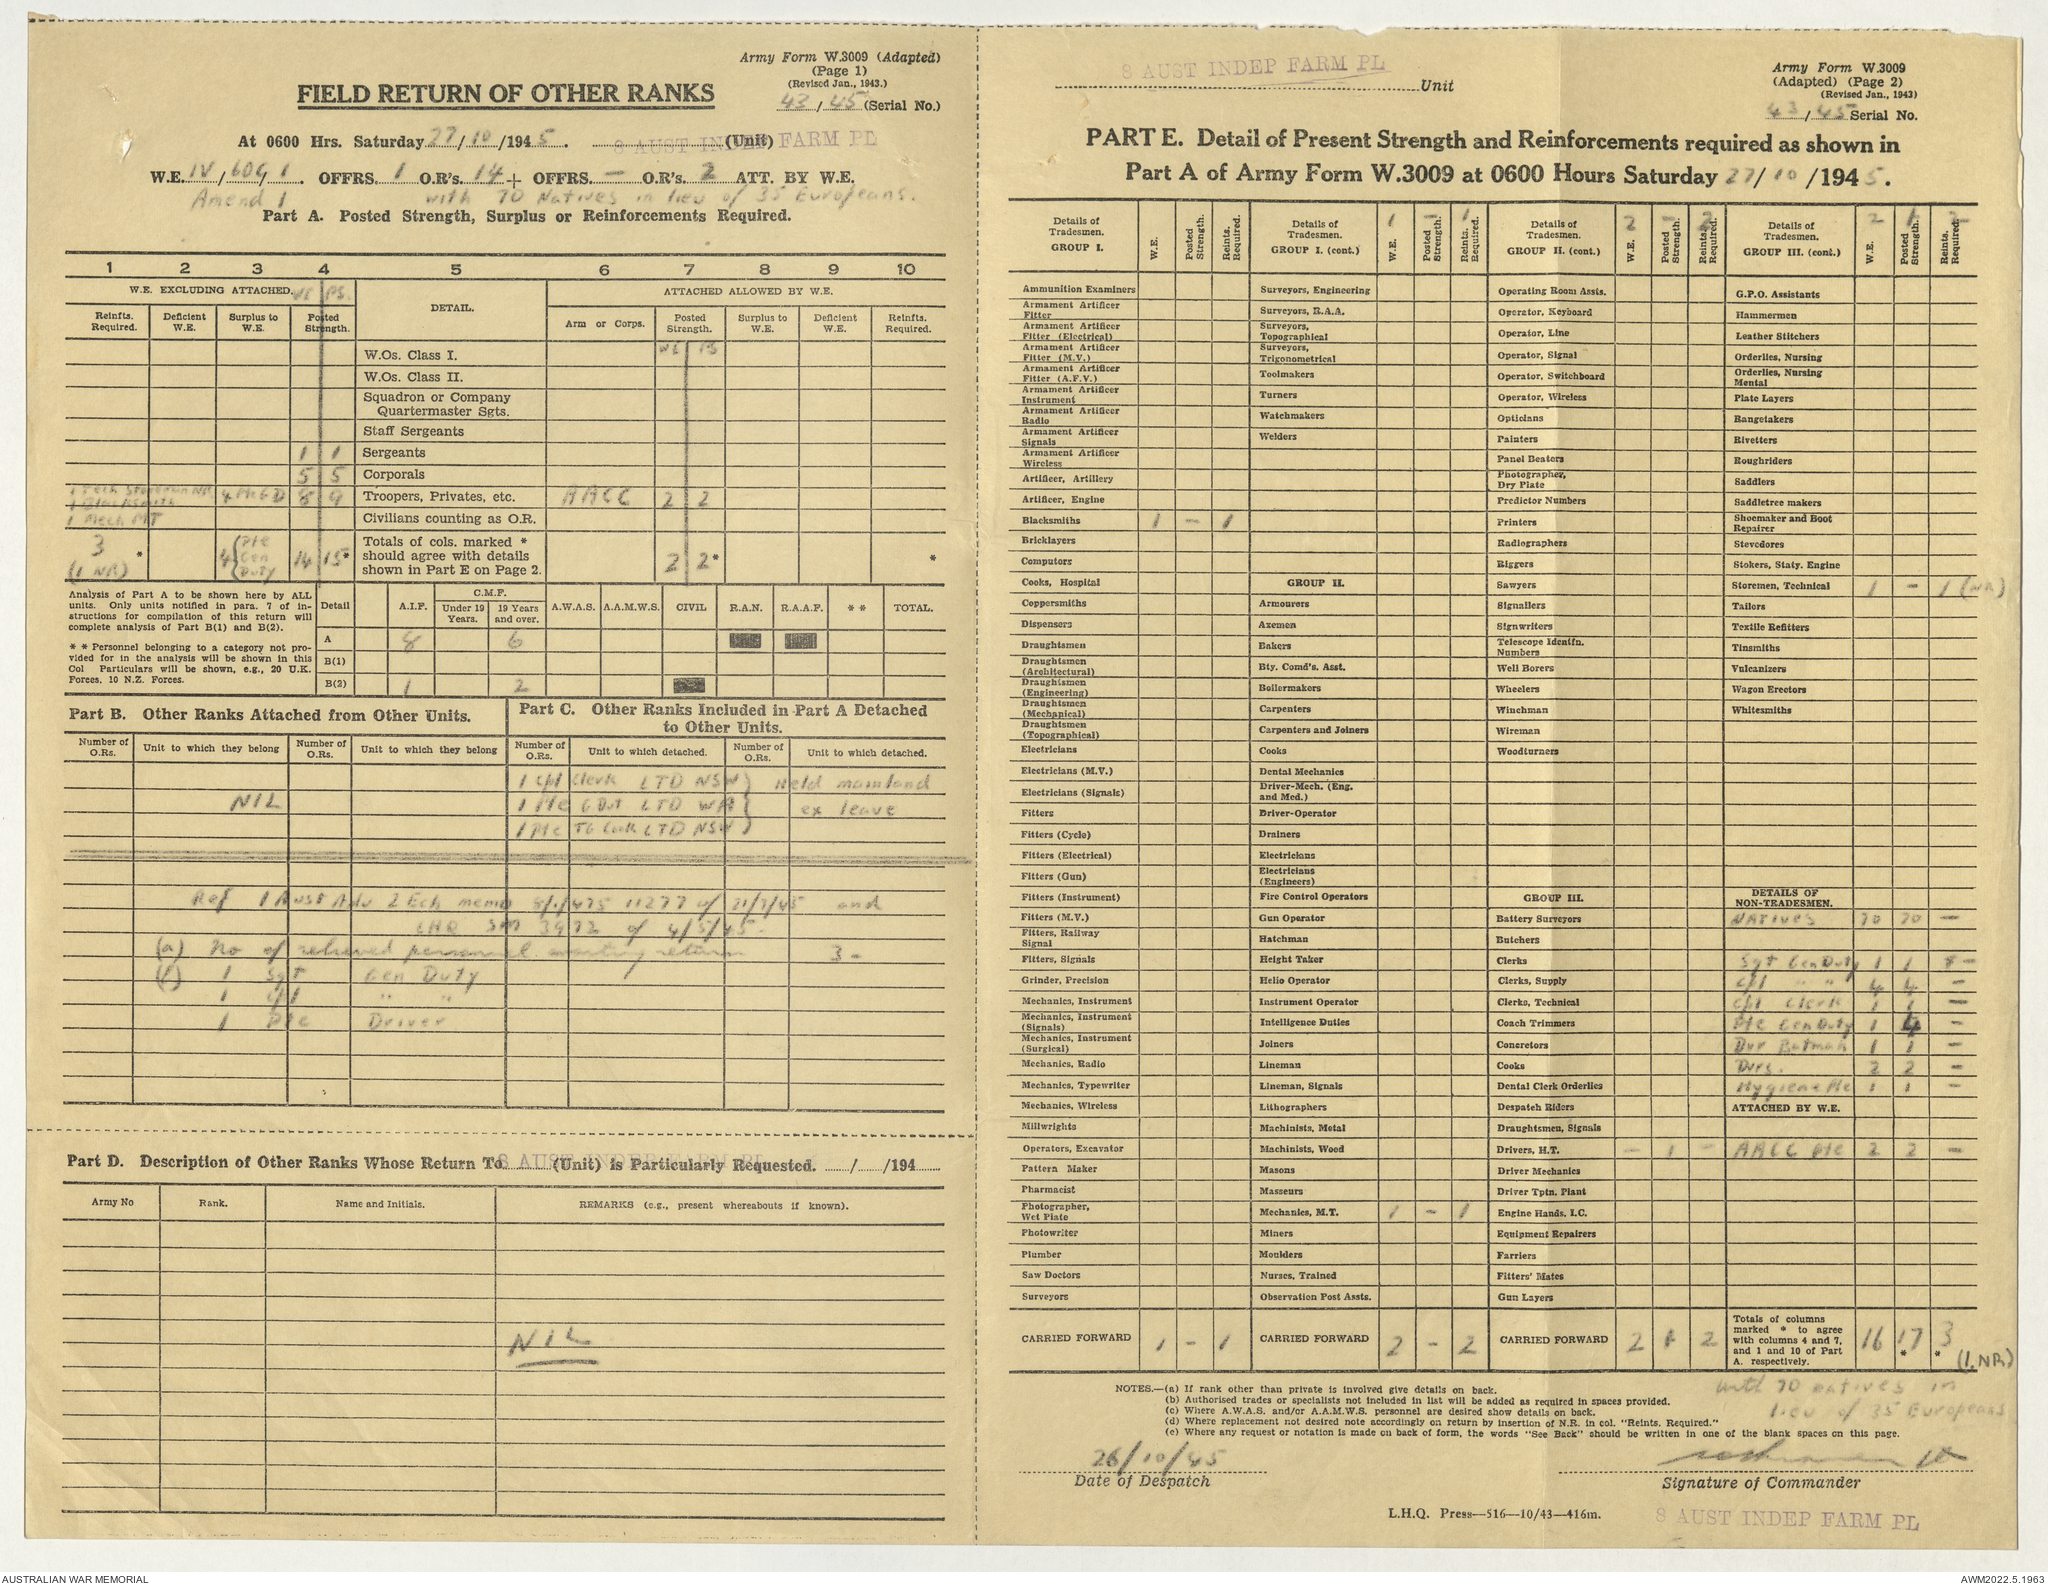 Army Form W.3009 (Adapted)
(Page 1)
(Revised Jan., 1943.)
43/45 (Serial No.)
FIELD RETURN OF OTHER RANKS
At 0600 Hrs. Saturday 27/10/1945. (Unit) 8 AUST INDEP FARM PL
W.E. IV/609/1. OFFRS. 1 O.R's. 14 + OFFRS. — O.R's. 2 ATT. BY W.E.
Amend 1 with 70 Natives in lieu of 35 Europeans.
Part A. Posted Strength, Surplus or Reinforcements Required.
1 2 3 4 5 6 7 8 9 10
W.E. EXCLUDING ATTACHED. WE PS. DETAIL. ATTACHED ALLOWED BY W.E.
Reinfts. Required. Deficient W.E. Surplus to W.E. Posted Strength. Arm or Corps. Posted Strength. Surplus to W.E. Deficient W.E. Reinfts. Required.
W.Os. Class I. WE PS
W.Os. Class II.
Squadron or Company Quartermaster Sgts.
Staff Sergeants
1 1 Sergeants
5 5 Corporals
1 Tech Storeman NR 4 Pte G D 8 9 Troopers, Privates, etc. AACC 2 2
1 Blacksmith
1 Mech MT Civilians counting as O.R.
3 * (1 NR) 4 Pte Gen Duty 14 15* Totals of cols. marked * should agree with details shown in Part E on Page 2. 2 2* *
Analysis of Part A to be shown here by ALL units. Only units notified in para. 7 of instructions for compilation of this return will complete analysis of Part B(1) and B(2).
* * Personnel belonging to a category not provided for in the analysis will be shown in this Col Particulars will be shown, e.g., 20 U.K. Forces, 10 N.Z. Forces.
Detail A.I.F. C.M.F. Under 19 Years. 19 Years and over. A.W.A.S. A.A.M.W.S. CIVIL R.A.N. R.A.A.F. * * TOTAL.
A 8 6
B(1)
B(2) 1 2
Part B. Other Ranks Attached from Other Units.
Part C. Other Ranks Included in Part A Detached to Other Units.
Number of O.Rs. Unit to which they belong Number of O.Rs. Unit to which they belong Number of O.Rs. Unit to which detached. Number of O.Rs. Unit to which detached.
1 Cpl Clerk LTD NSW Held mainland
NIL 1 Pte G Dut LTD WA ex leave
1 Pte TG Cook LTD NSW
Ref 1 Aust Adv 2 Ech memo 11277 of 21/7/45 and
LHQ SM 3972 of 4/5/45.
(a) No of relieved personnel awaiting return 3 -
1 Sgt Gen Duty
1 Cpl " "
1 Pte Driver
Part D. Description of Other Ranks Whose Return To 8 AUST INDEP FARM PL (Unit) is Particularly Requested. / /194
Army No Rank. Name and Initials. REMARKS (e.g., present whereabouts if known).
NIL
8 AUST INDEP FARM PL Unit
Army Form W.3009
(Adapted) (Page 2)
(Revised Jan., 1943)
43/45 Serial No.
PART E. Detail of Present Strength and Reinforcements required as shown in
Part A of Army Form W.3009 at 0600 Hours Saturday 27/10/1945.
Details of Tradesmen. GROUP I. W.E. Posted Strength. Reints. Required.
Ammunition Examiners
Armament Artificer Fitter
Armament Artificer Fitter (Electrical)
Armament Artificer Fitter (M.V.)
Armament Artificer Fitter (A.F.V.)
Armament Artificer Instrument
Armament Artificer Radio
Armament Artificer Signals
Armament Artificer Wireless
Artificer, Artillery
Artificer, Engine
Blacksmiths 1 - 1
Bricklayers
Computors
Cooks, Hospital
Coppersmiths
Dispensers
Draughtsmen
Draughtsmen (Architectural)
Draughtsmen (Engineering)
Draughtsmen (Mechanical)
Draughtsmen (Topographical)
Electricians
Electricians (M.V.)
Electricians (Signals)
Fitters
Fitters (Cycle)
Fitters (Electrical)
Fitters (Gun)
Fitters (Instrument)
Fitters (M.V.)
Fitters, Railway Signal
Fitters, Signals
Grinder, Precision
Mechanics, Instrument
Mechanics, Instrument (Signals)
Mechanics, Instrument (Surgical)
Mechanics, Radio
Mechanics, Typewriter
Mechanics, Wireless
Millwrights
Operators, Excavator
Pattern Maker
Pharmacist
Photographer, Wet Plate
Photowriter
Plumber
Saw Doctors
Surveyors
CARRIED FORWARD 1 - 1
Details of Tradesmen. GROUP I. (cont.) W.E. 1 Posted Strength. - Reints. Required. 1
Surveyors, Engineering
Surveyors, R.A.A.
Surveyors, Topographical
Surveyors, Trigonometrical
Toolmakers
Turners
Watchmakers
Welders
GROUP II.
Armourers
Axemen
Bakers
Bty. Comd's. Asst.
Boilermakers
Carpenters
Carpenters and Joiners
Cooks
Dental Mechanics
Driver-Mech. (Eng. and Med.)
Driver-Operator
Drainers
Electricians
Electricians (Engineers)
Fire Control Operators
Gun Operator
Hatchman
Height Taker
Helio Operator
Instrument Operator
Intelligence Duties
Joiners
Lineman
Lineman, Signals
Lithographers
Machinists, Metal
Machinists, Wood
Masons
Masseurs
Mechanics, M.T. 1 - 1
Miners
Moulders
Nurses, Trained
Observation Post Assts.
CARRIED FORWARD 2 - 2
Details of Tradesmen. GROUP II. (cont.) W.E. 2 Posted Strength. - Reints. Required. 2
Operating Room Assts.
Operator, Keyboard
Operator, Line
Operator, Signal
Operator, Switchboard
Operator, Wireless
Opticians
Painters
Panel Beaters
Photographer, Dry Plate
Predictor Numbers
Printers
Radiographers
Riggers
Sawyers
Signallers
Signwriters
Telescope Identfn. Numbers
Well Borers
Wheelers
Winchman
Wireman
Woodturners
GROUP III.
Battery Surveyors
Butchers
Clerks
Clerks, Supply
Clerks, Technical
Coach Trimmers
Concretors
Cooks
Dental Clerk Orderlies
Despatch Riders
Draughtsmen, Signals
Drivers, H.T. - 1 -
Driver Mechanics
Driver Tptn. Plant
Engine Hands, I.C.
Equipment Repairers
Farriers
Fitters' Mates
Gun Layers
CARRIED FORWARD 2 1 2
Details of Tradesmen. GROUP III. (cont.) W.E. 2 Posted Strength. 1 Reints. Required. 2
G.P.O. Assistants
Hammermen
Leather Stitchers
Orderlies, Nursing
Orderlies, Nursing Mental
Plate Layers
Rangetakers
Rivetters
Roughriders
Saddlers
Saddletree makers
Shoemaker and Boot Repairer
Stevedores
Stokers, Staty. Engine
Storemen, Technical 1 - 1 (NR)
Tailors
Textile Refitters
Tinsmiths
Vulcanizers
Wagon Erectors
Whitesmiths
DETAILS OF NON-TRADESMEN.
NATIVES 70 70 -
Sgt Gen Duty 1 1 -
Cpl " " 4 4 -
Cpl Clerk 1 1 -
Pte Gen Duty 1 4 -
Dvr Batman 1 1 -
Dvrs. 2 2 -
Hygiene Pte 1 1 -
ATTACHED BY W.E.
AACC Pte 2 2 -
Totals of columns marked * to agree with columns 4 and 7, and 1 and 10 of Part A. respectively. 16 17 * 3 * (1. NR)
with 70 natives in
lieu of 35 Europeans
NOTES.—(a) If rank other than private is involved give details on back.
(b) Authorised trades or specialists not included in list will be added as required in spaces provided.
(c) Where A.W.A.S. and/or A.A.M.W.S. personnel are desired show details on back.
(d) Where replacement not desired note accordingly on return by insertion of N.R. in col. "Reints. Required."
(e) Where any request or notation is made on back of form, the words "See Back" should be written in one of the blank spaces on this page.
26/10/45
Date of Despatch
Signature of Commander
L.H.Q. Press—516—10/43—416m.
8 AUST INDEP FARM PL
AUSTRALIAN WAR MEMORIAL
AWM2022.5.1963